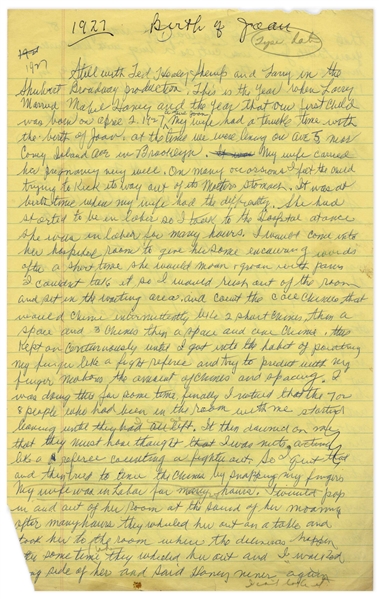 1927 Birth of Joan
Type hat
1927
Still with Ted Healey Shemp and Larry in the
Shubert Broadway production. This is the Year when Larry
Married Mabel Haney and the Year that our first child
was born on April 2. 1927, My wife had a trouble time with
the birth of Joan, at the time we were living on Ave J near
Coney Island Ave in Brooklyn. My wife carried
her pregnancy very well. On many occasions I felt the child
trying to kick its way out of its Mothers stomach. It was at
birth time when my wife had the difficulty. She had
started to be in labor so I took to the hospital at once
she was in labor for many hours. I would come into
her hospital room to give her some encouring words
after a short time she would moan & groan with pains
I couldnt take it so I would rush out of the room
and sit in the waiting area and count the call chimes that
would chime intermittently like 2 short chimes then a
space and 3 chimes then a space and one chime. this
kept on continuously until I got into the habit of pointing
my finger like a fight referee and try to predict with my
finger motions the amount of chimes and spacing. I
was doing this for some time, finally I noticed that the 7 or
8 people who had been in the room with me started
leaving until they had all left. It then dawned on me
that they must have thought that I was nuts acting
like a referee counting a fighter out. So I quit that
and then tried to time the chimes by snapping my fingers
My wife was in labor for many hours. I would pop
in and out of her room at the sound of her moaning
after many hours they wheeled her out on a table and
took her to the room where the deliveries happen
some time they wheeled her out and I walked
side of her and said Honey never again